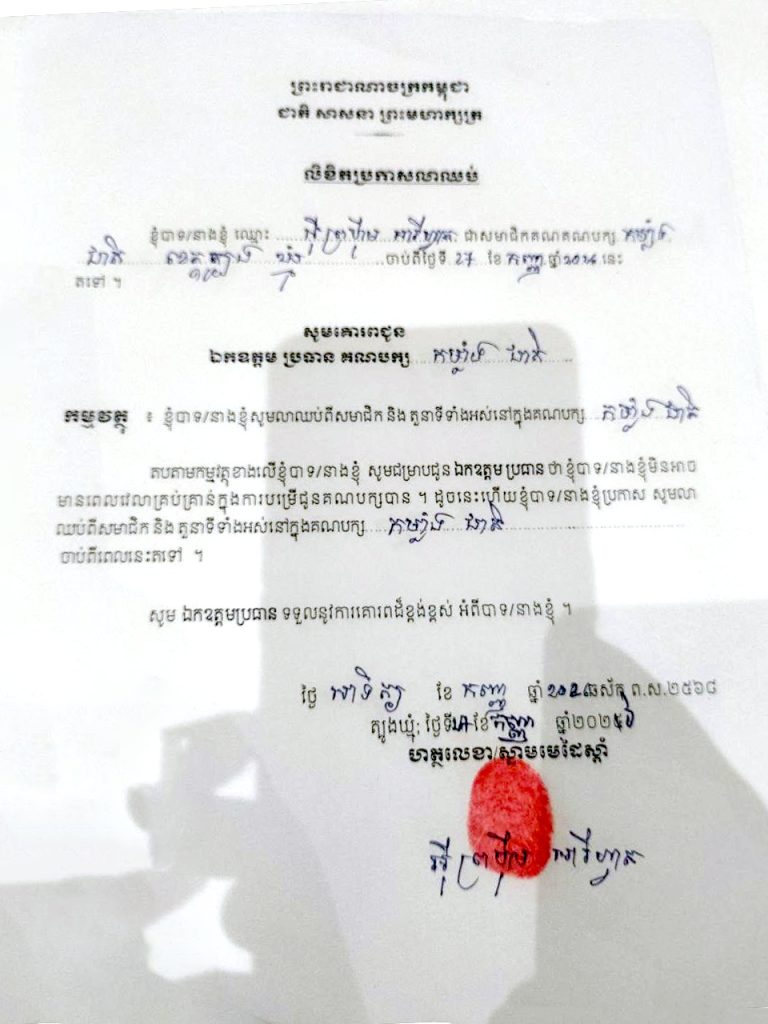 ព្រះរាជាណាចក្រកម្ពុជា
ជាតិ សាសនា ព្រះមហាក្សត្រ
លិខិតប្រកាសលាឈប់
ខ្ញុំបាទ/នាងខ្ញុំ ឈ្មោះ អ៊ី ព្រហ៊ីម អារីហ្វាត ជាសមាជិកគណគណបក្ស កម្លាំង
ជាតិ ខេត្តត្បូង ឃ្មុំ ចាប់ពីថ្ងៃទី 27 ខែ កញ្ញា ឆ្នាំ 2024 នេះ
តទៅ ។
សូមគោរពជូន
ឯកឧត្តម ប្រធាន គណបក្ស កម្លាំង ជាតិ
កម្មវត្ថុ ៖ ខ្ញុំបាទ/នាងខ្ញុំសូមលាឈប់ពីសមាជិក និង តួនាទីទាំងអស់នៅក្នុងគណបក្ស កម្លាំង ជាតិ
តបតាមកម្មវត្ថុខាងលើខ្ញុំបាទ/នាងខ្ញុំ សូមជម្រាបជូន ឯកឧត្តម ប្រធាន ថា ខ្ញុំបាទ/នាងខ្ញុំមិនអាច
មានពេលវេលាគ្រប់គ្រាន់ក្នុងការបម្រើជូនគណបក្សបាន ។ ដូចនេះហើយខ្ញុំបាទ/នាងខ្ញុំប្រកាស សូមលា
ឈប់ពីសមាជិក និង តួនាទីទាំងអស់នៅក្នុងគណបក្ស កម្លាំង ជាតិ
ចាប់ពីពេលនេះតទៅ ។
សូម ឯកឧត្តមប្រធាន ទទួលនូវការគោរពដ៏ខ្ពង់ខ្ពស់ អំពីបាទ/នាងខ្ញុំ ។
ថ្ងៃ អាទិត្យ ខែ កញ្ញា ឆ្នាំ ឆស័ក ព.ស.២៥៦៨
ត្បូងឃ្មុំ; ថ្ងៃទី ខែ កញ្ញា ឆ្នាំ២០២
ហត្ថលេខា/ស្នាមមេដៃស្តាំ
អ៊ី ព្រហ៊ីម អារីហ្វាត